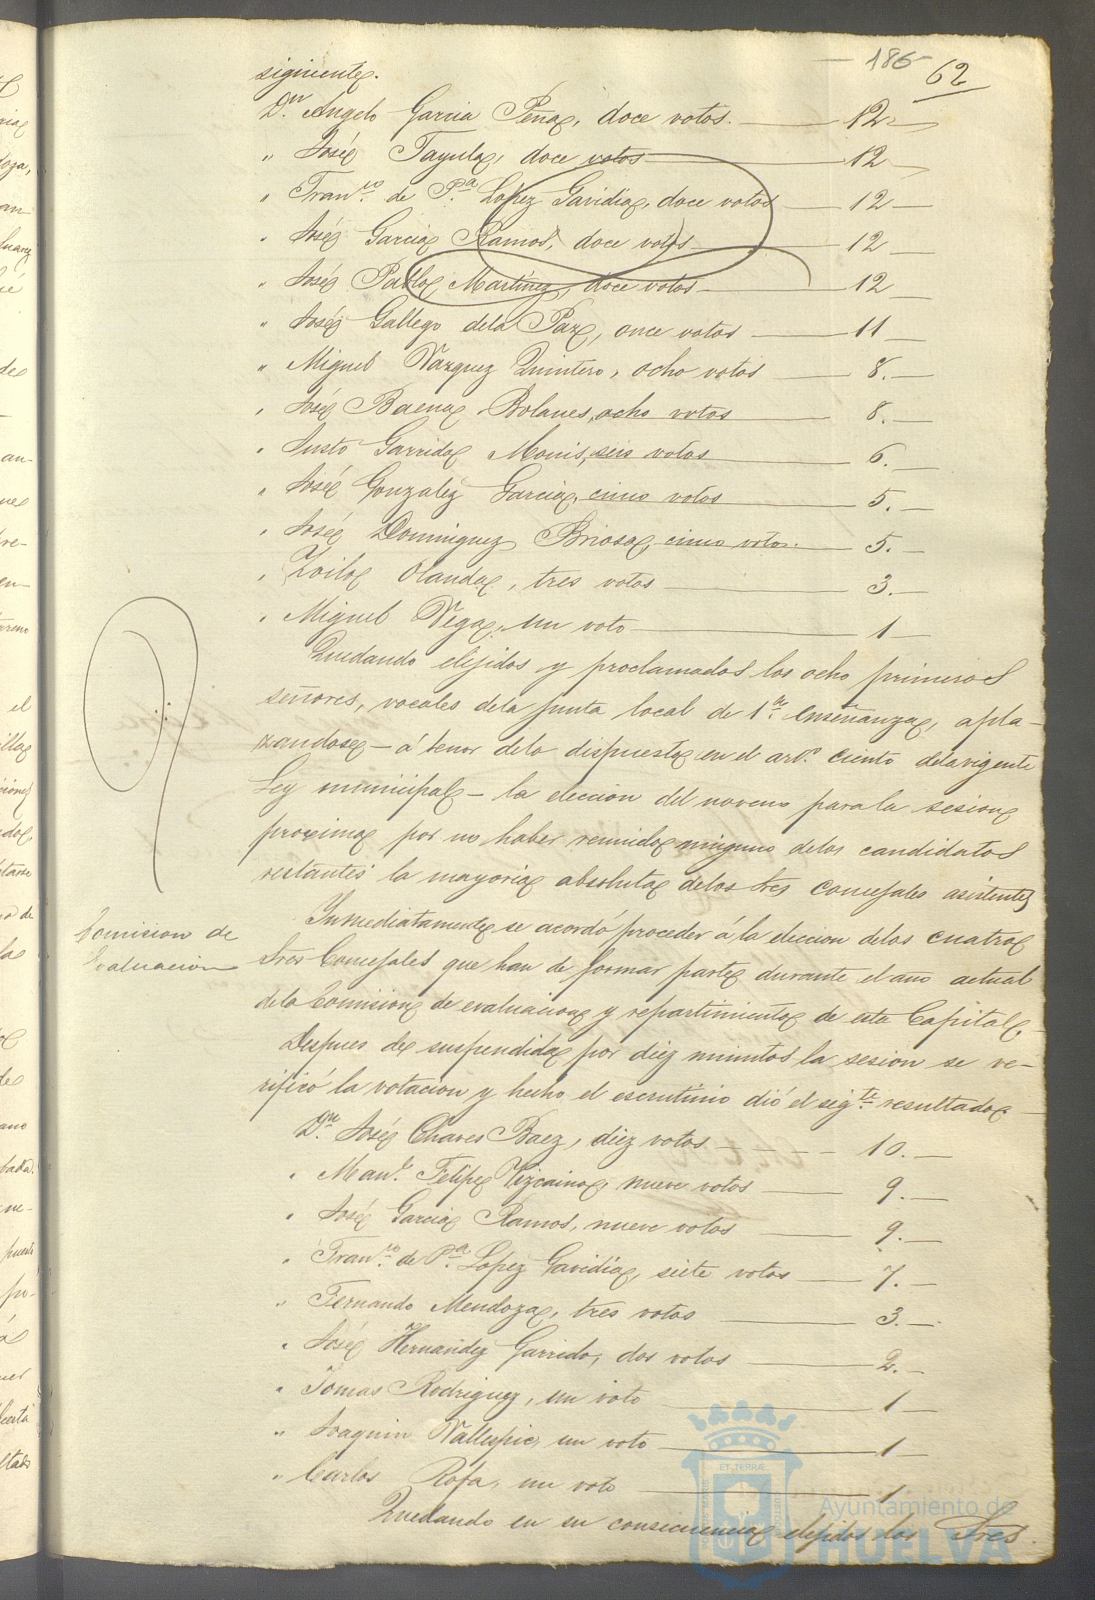 186
62
siguiente.
Dn. Angelo Garcia Peña, doce votos. 12
" José Tayula, doce votos 12
" Franco. de Pa. Lopez Gavidia, doce votos 12
" José Garcia Ramos, doce votos 12
" José Pablo Martinez, doce votos 12
" José Gallego dela Paz, once votos 11
" Miguel Vazquez Quintero, ocho votos 8.
" José Baena Bolaues, ocho votos 8.
" Justo Garrido Monis, seis votos 6.
" José Gonzalez Garcia, cinco votos 5.
" José Dominguez Briosa, cinco votos. 5.
" Zoilo Olanda, tres votos 3.
" Miguel Vega, un voto 1
Quedando elejidos y proclamados los ocho primeros
señores, vocales dela junta local de 1a. enseñanza, apla-
zandose - á tenor delo dispuesto en el art.º ciento dela vigente
Ley municipal - la eleccion del noveno para la sesion
proxima por no haber reunido ninguno delos candidatos
restantes la mayoria absoluta delos Sres Concejales asistentes
Comision de
Evaluacion
Inmediatamente se acordó proceder á la eleccion delos cuatro
Sres Concejales que han de formar parte durante el año actual
dela Comision de evaluacion y repartimiento de esta Capital.
Despues de suspendida por diez minutos la sesion se ve-
rificó la votacion y hecho el escrutinio dió el sigte. resultado
Dn. José Chaves Baez, diez votos 10.
" Manl. Felipe Vizcaino, nueve votos 9.
" José Garcia Ramos, nueve votos 9.
" Franco. de Pa. Lopez Gavidia, siete votos 7.
" Fernando Mendoza, tres votos 3.
" José Hernandez Garrido, dos votos 2.
" Tomas Rodriguez, un voto 1
" Joaquin Vallespin, un voto 1
" Carlos Rofa, un voto 1
Quedando en su consecuencia elejidos los Sres.
Ayuntamiento de
HUELVA